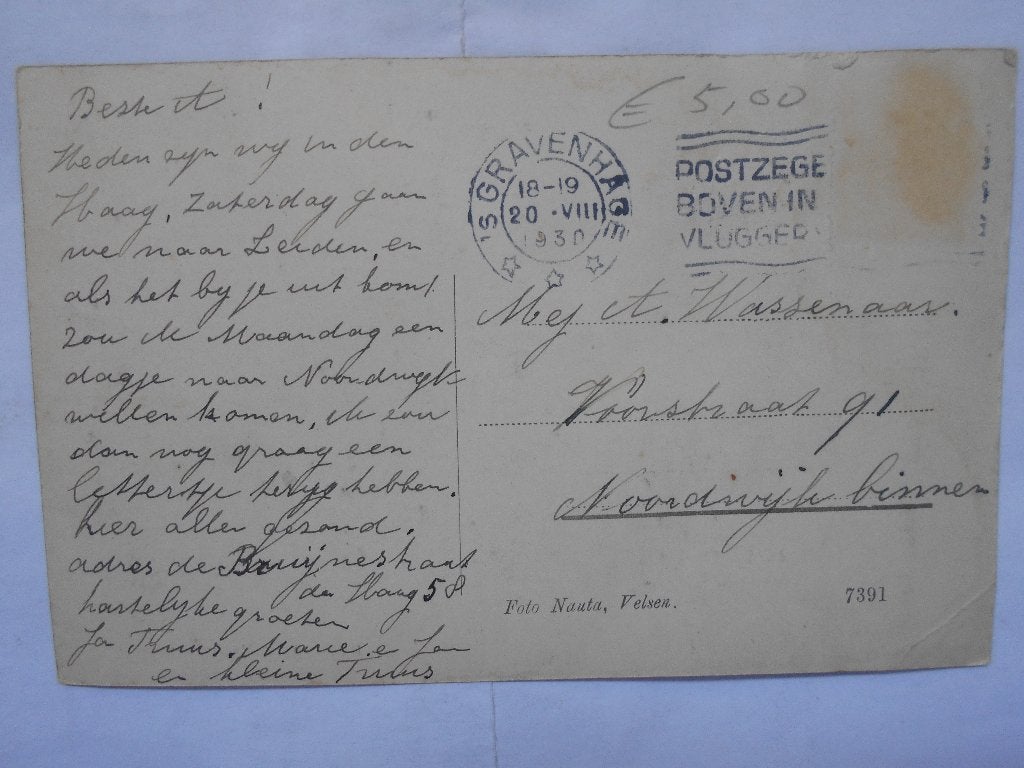 Beste A !
Heden zyn wy in den
Haag, Zaterdag gaan
we naar Leiden, en
als het by je uit komt
zou ik Maandag een
dagje naar Noordwyk
willen komen, ik zou
dan nog graag een
lettertje terug hebben.
hier allen gezond.
adres de Bruijnestraat
den Haag 58
hartelyke groeten
Jo Truus. Marie e Jan
en kleine Truus
€ 5,00
'S GRAVENHAGE
18-19
20 · VIII
1930
POSTZEGE
BOVEN IN
VLUGGER
Mej A. Wassenaar.
Voorstraat 91
Noordwijk binnen
Foto Nauta, Velsen.
7391